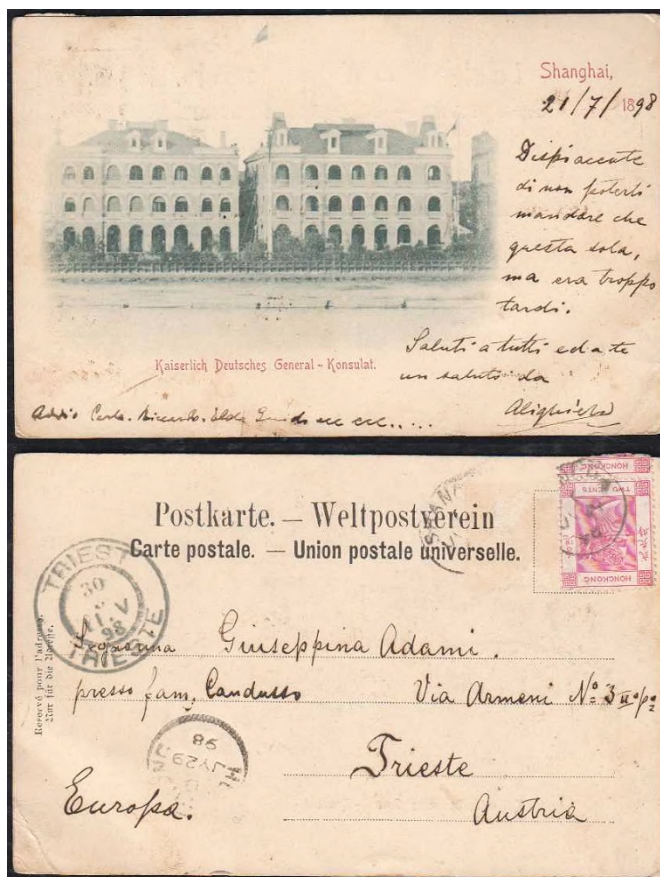 Shanghai,
21/7/1898
Dispiacente
di non poterti
mandare che
questa sola,
ma era troppo
tardi.
Saluti a tutti ed a te
un saluto da
Alighiero
Kaiserlich Deutsches General-Konsulat.
Addio Carlo. Riccardo. Guido ecc ecc.....
Postkarte. — Weltpostverein
Carte postale. — Union postale universelle.
HONGKONG
TWO CENTS
HONGKONG
TRIEST
30
V
98
TRIESTE
Reservé pour l'adresse.
Nur für die Adresse.
Giuseppina Adami.
presso fam. Candusso Via Armeni No. 3
JY 29
98
Trieste
Europa.
Austria